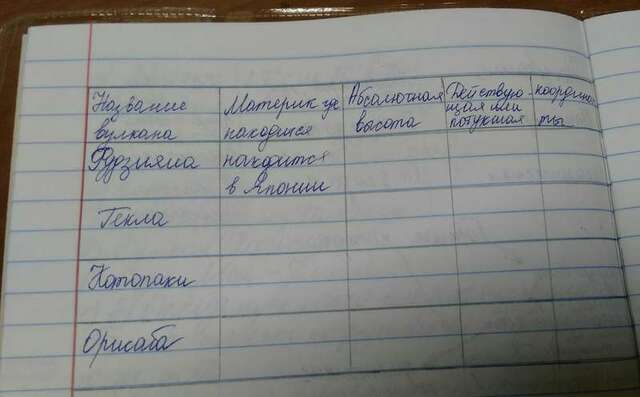 Название вулкана
Материк где находится
Абсолютная высота
Действую-щая или потухшая
координа-ты
Фудзияма
находится в Японии
Гекла
Котопаки
Орисаба